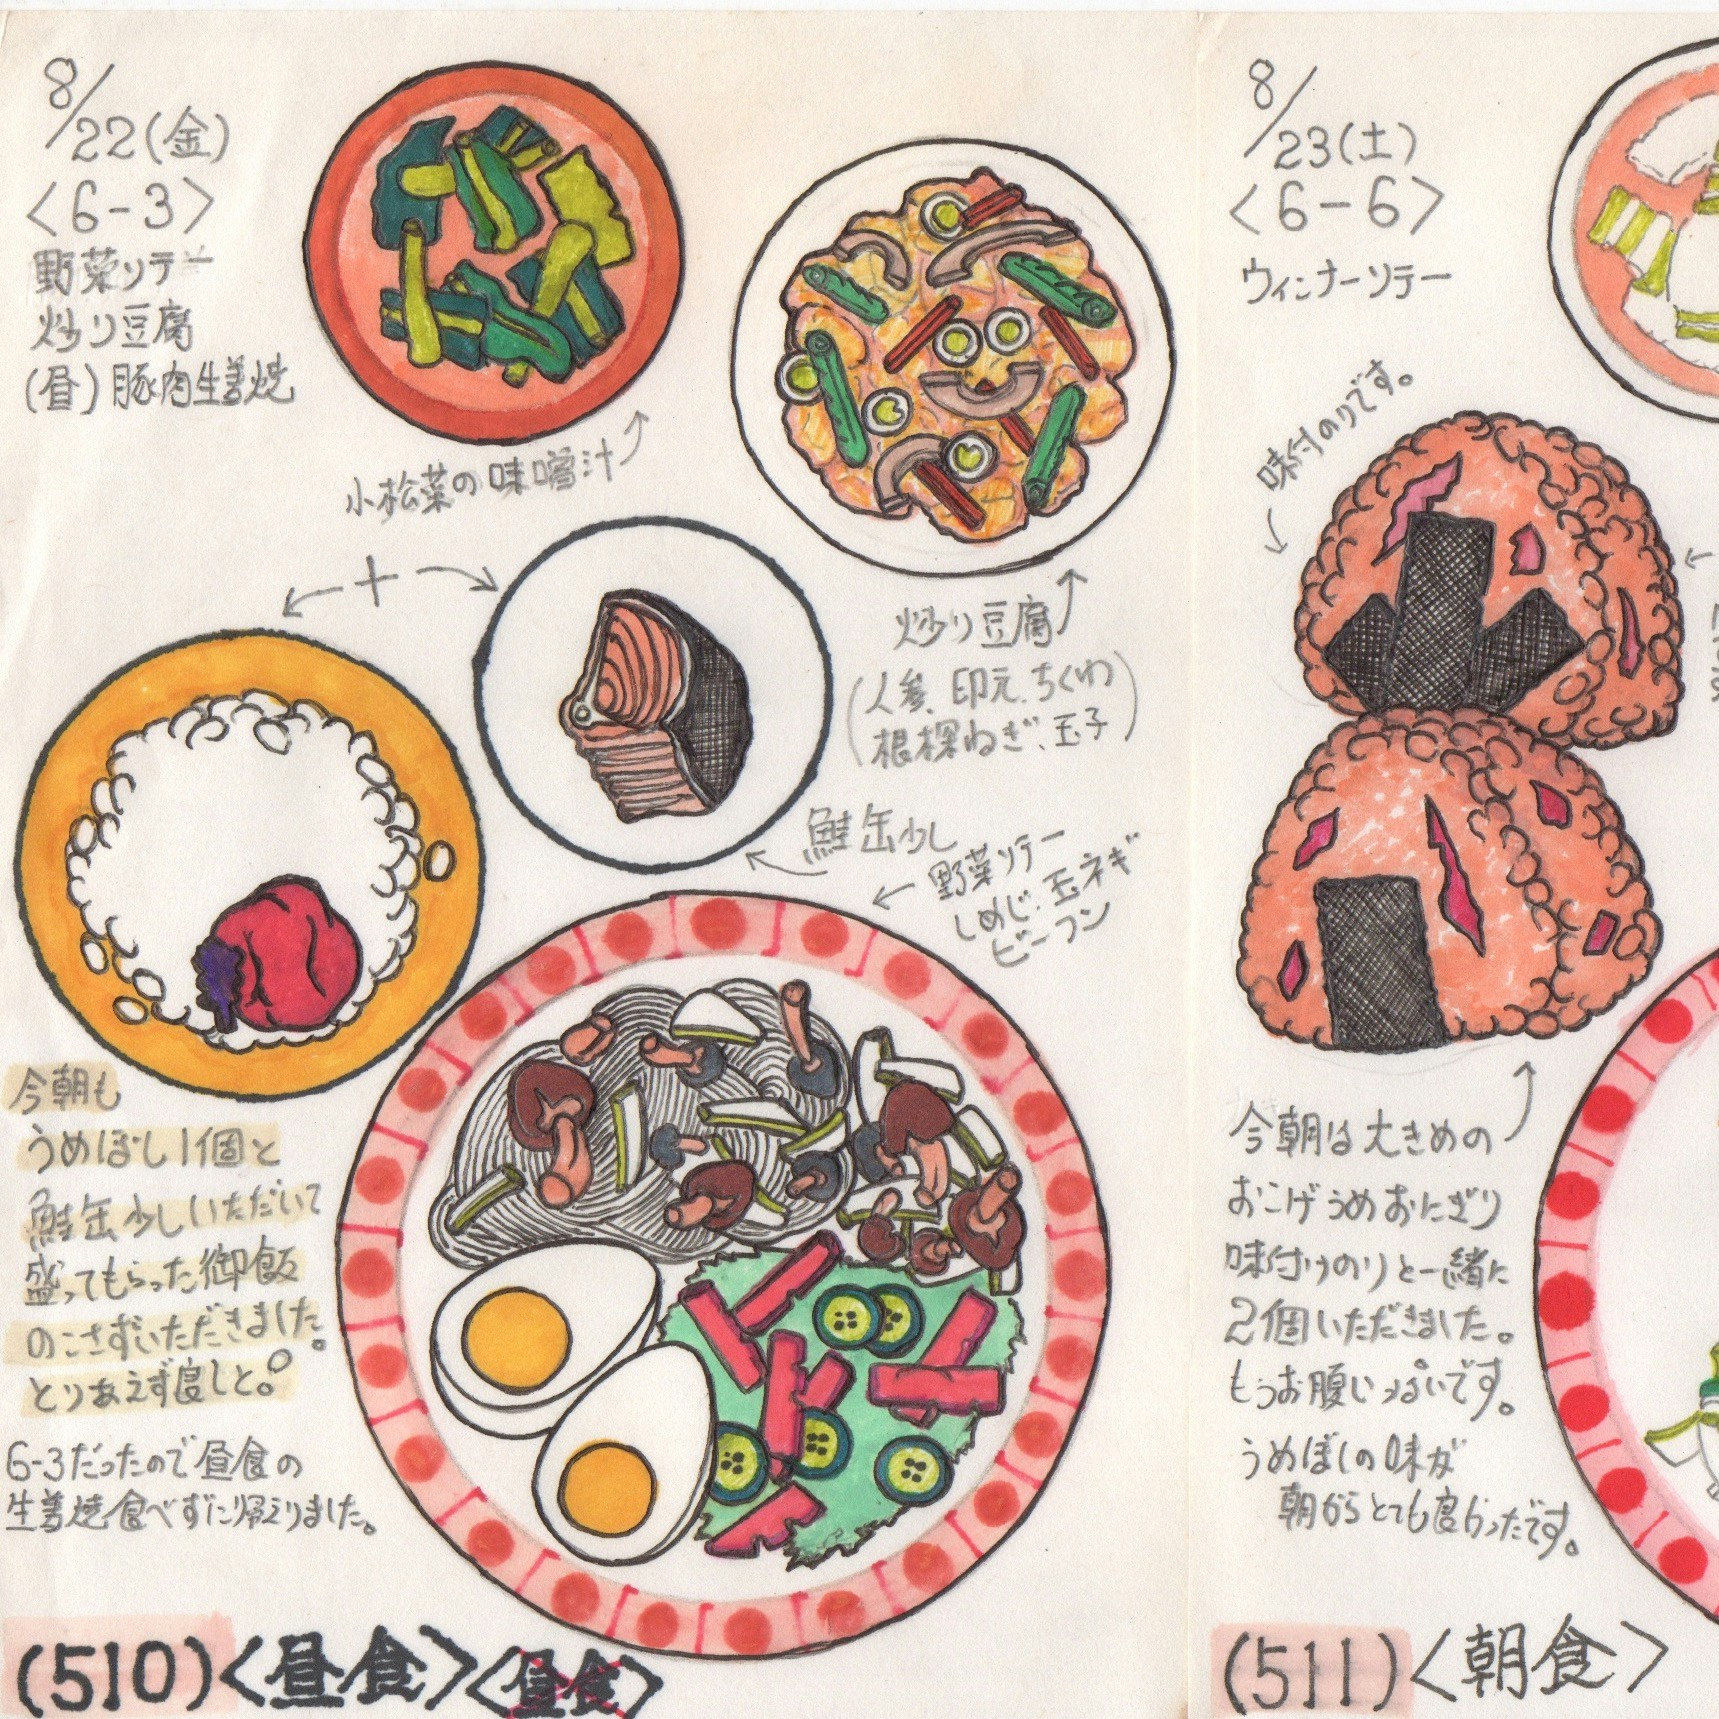 8/22(金)
<6-3>
野菜ソテー
炒り豆腐
(昼)豚肉生姜焼
小松菜の味噌汁
+
炒り豆腐
(人参、印元、ちくわ
根深ねぎ、玉子)
鮭缶少し
野菜ソテー
しめじ、玉ネギ
ビーフン
今朝も
うめぼし1個と
鮭缶少しいただいて
盛ってもらった御飯
のこさずいただきました。
とりあえず良しと。
6-3だったので昼食の
生姜焼食べずに帰えりました。
(510)<昼食><昼食>
8/23(土)
<6-6>
ウィンナーソテー
味付のりです。
今朝は大きめの
おこげうめおにぎり
味付けのりと一緒に
2個いただきました。
もうお腹いっぱいです。
うめぼしの味が
朝からとても良かったです。
(511)<朝食>